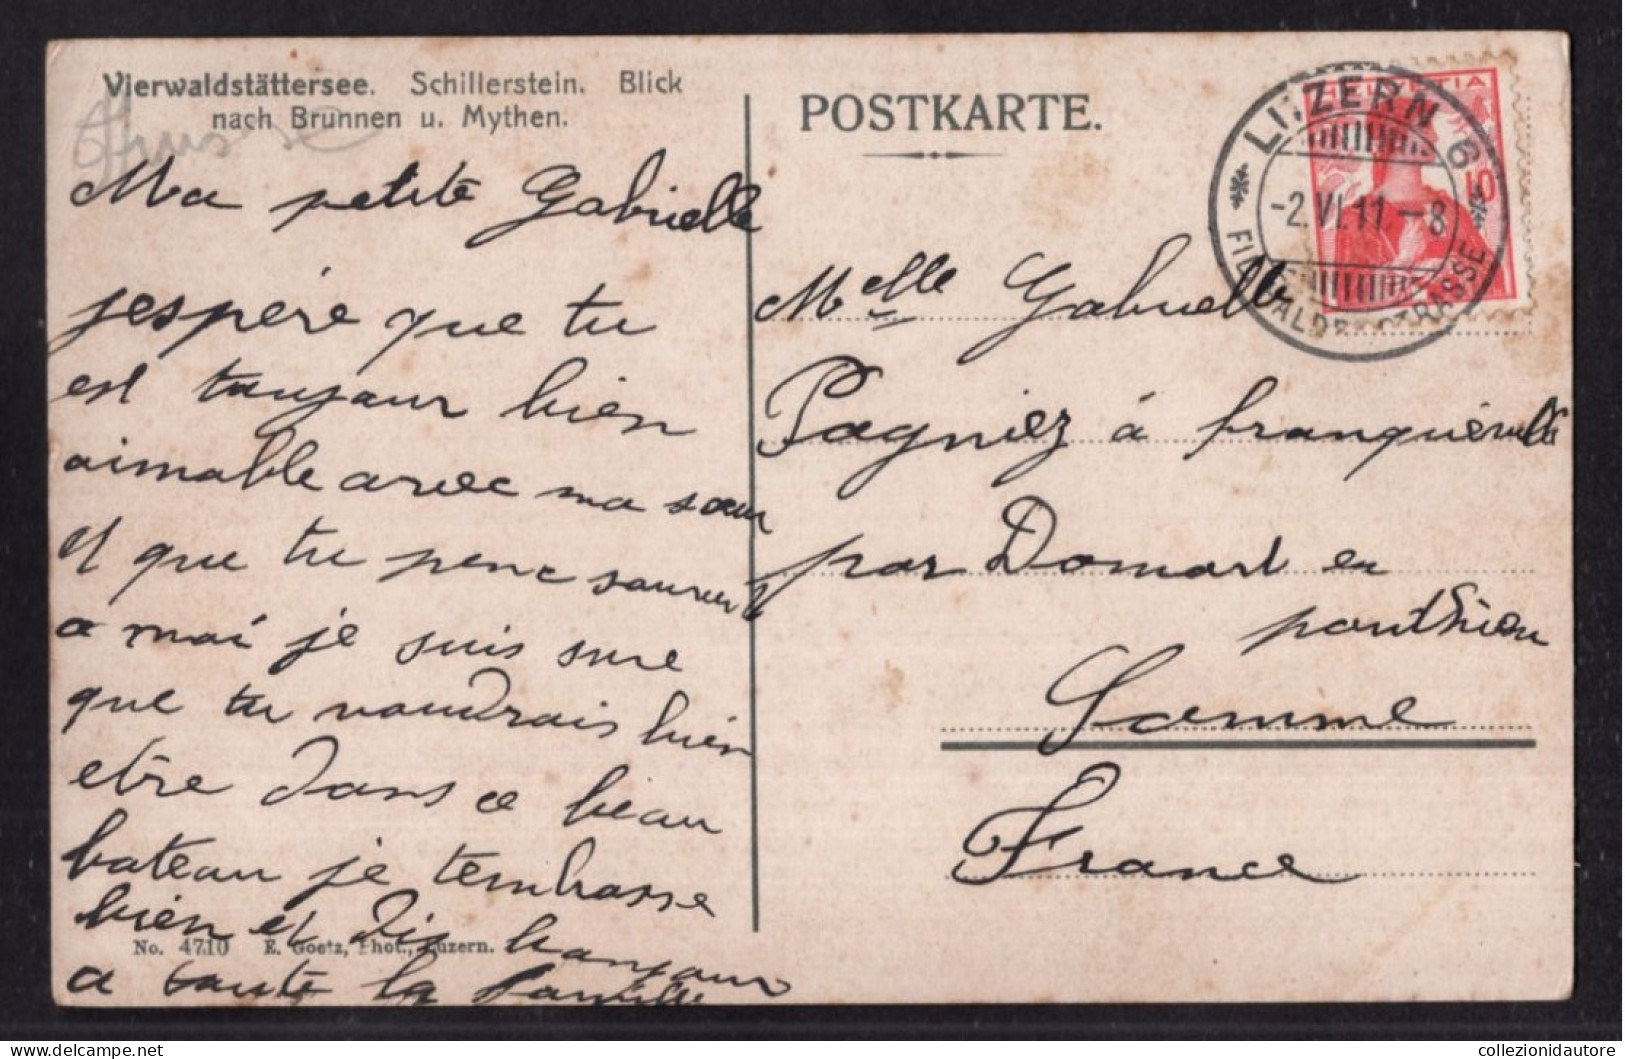 Vierwaldstättersee. Schillerstein. Blick
nach Brunnen u. Mythen.
POSTKARTE.
LUZERN 6
-2.VI.11-8
HELVETIA
10
Ma petite Gabrielle
jespére que tu
est toujour bien
aimable avec ma sœur
et que tu pence souvent
a moi je suis sure
que tu voudrais bien
etre dans ce beau
bateau je tembrasse
bien et dis bonjour
a toute la famille
Melle Gabrielle
Pagniez á franquieville
par Domart en
ponthieu
Somme
France
No. 4710 E. Goetz, Phot., Luzern.
collezionidautore